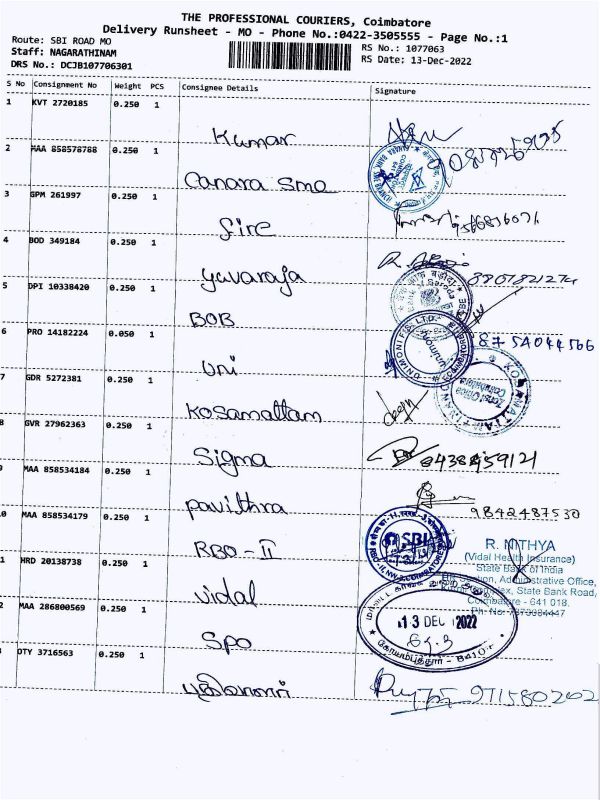 THE PROFESSIONAL COURIERS, Coimbatore
Delivery Runsheet - MO - Phone No.:0422-3505555 - Page No.:1
Route: SBI ROAD MO
RS No.: 1077063
Staff: NAGARATHINAM
RS Date: 13-Dec-2022
DRS No.: DCJB107706301
S No Consignment No Weight PCS Consignee Details Signature
1 KVT 2720185 0.250 1
Kumar
2 MAA 858578788 0.250 1
Canara Sme
3 GPM 261997 0.250 1
fire
4 BOD 349184 0.250 1
yuvaraja
5 DPI 10338420 0.250 1
BOB
6 PRO 14182224 0.050 1
8754044566
Uni
7 GDR 5272381 0.250 1
Kosamattam
8 GVR 27962363 0.250 1
Sigma 8438459121
9 MAA 858534184 0.250 1
Pavithra 9842487530
0 MAA 858534179 0.250 1
RBO-II SBI
R. NITHYA
(Vidal Health Insurance)
State Bank of India
1 HRD 20138738 0.250 1
Administrative Office,
State Bank Road,
Vidal Coimbatore - 641 018.
2 MAA 286800569 0.250 1
13 DEC 2022
Spo
OTY 3716563 0.250 1
971580202